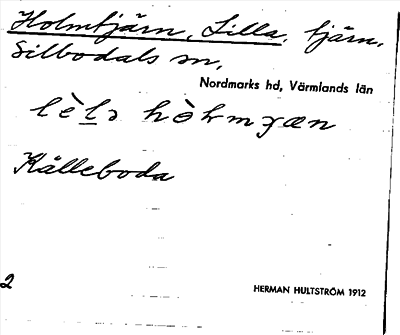 Holmtjärn, Lilla, tjärn.
Silbodals sn,
Nordmarks hd, Värmlands län
Källeboda
2
HERMAN HULTSTRÖM 1912